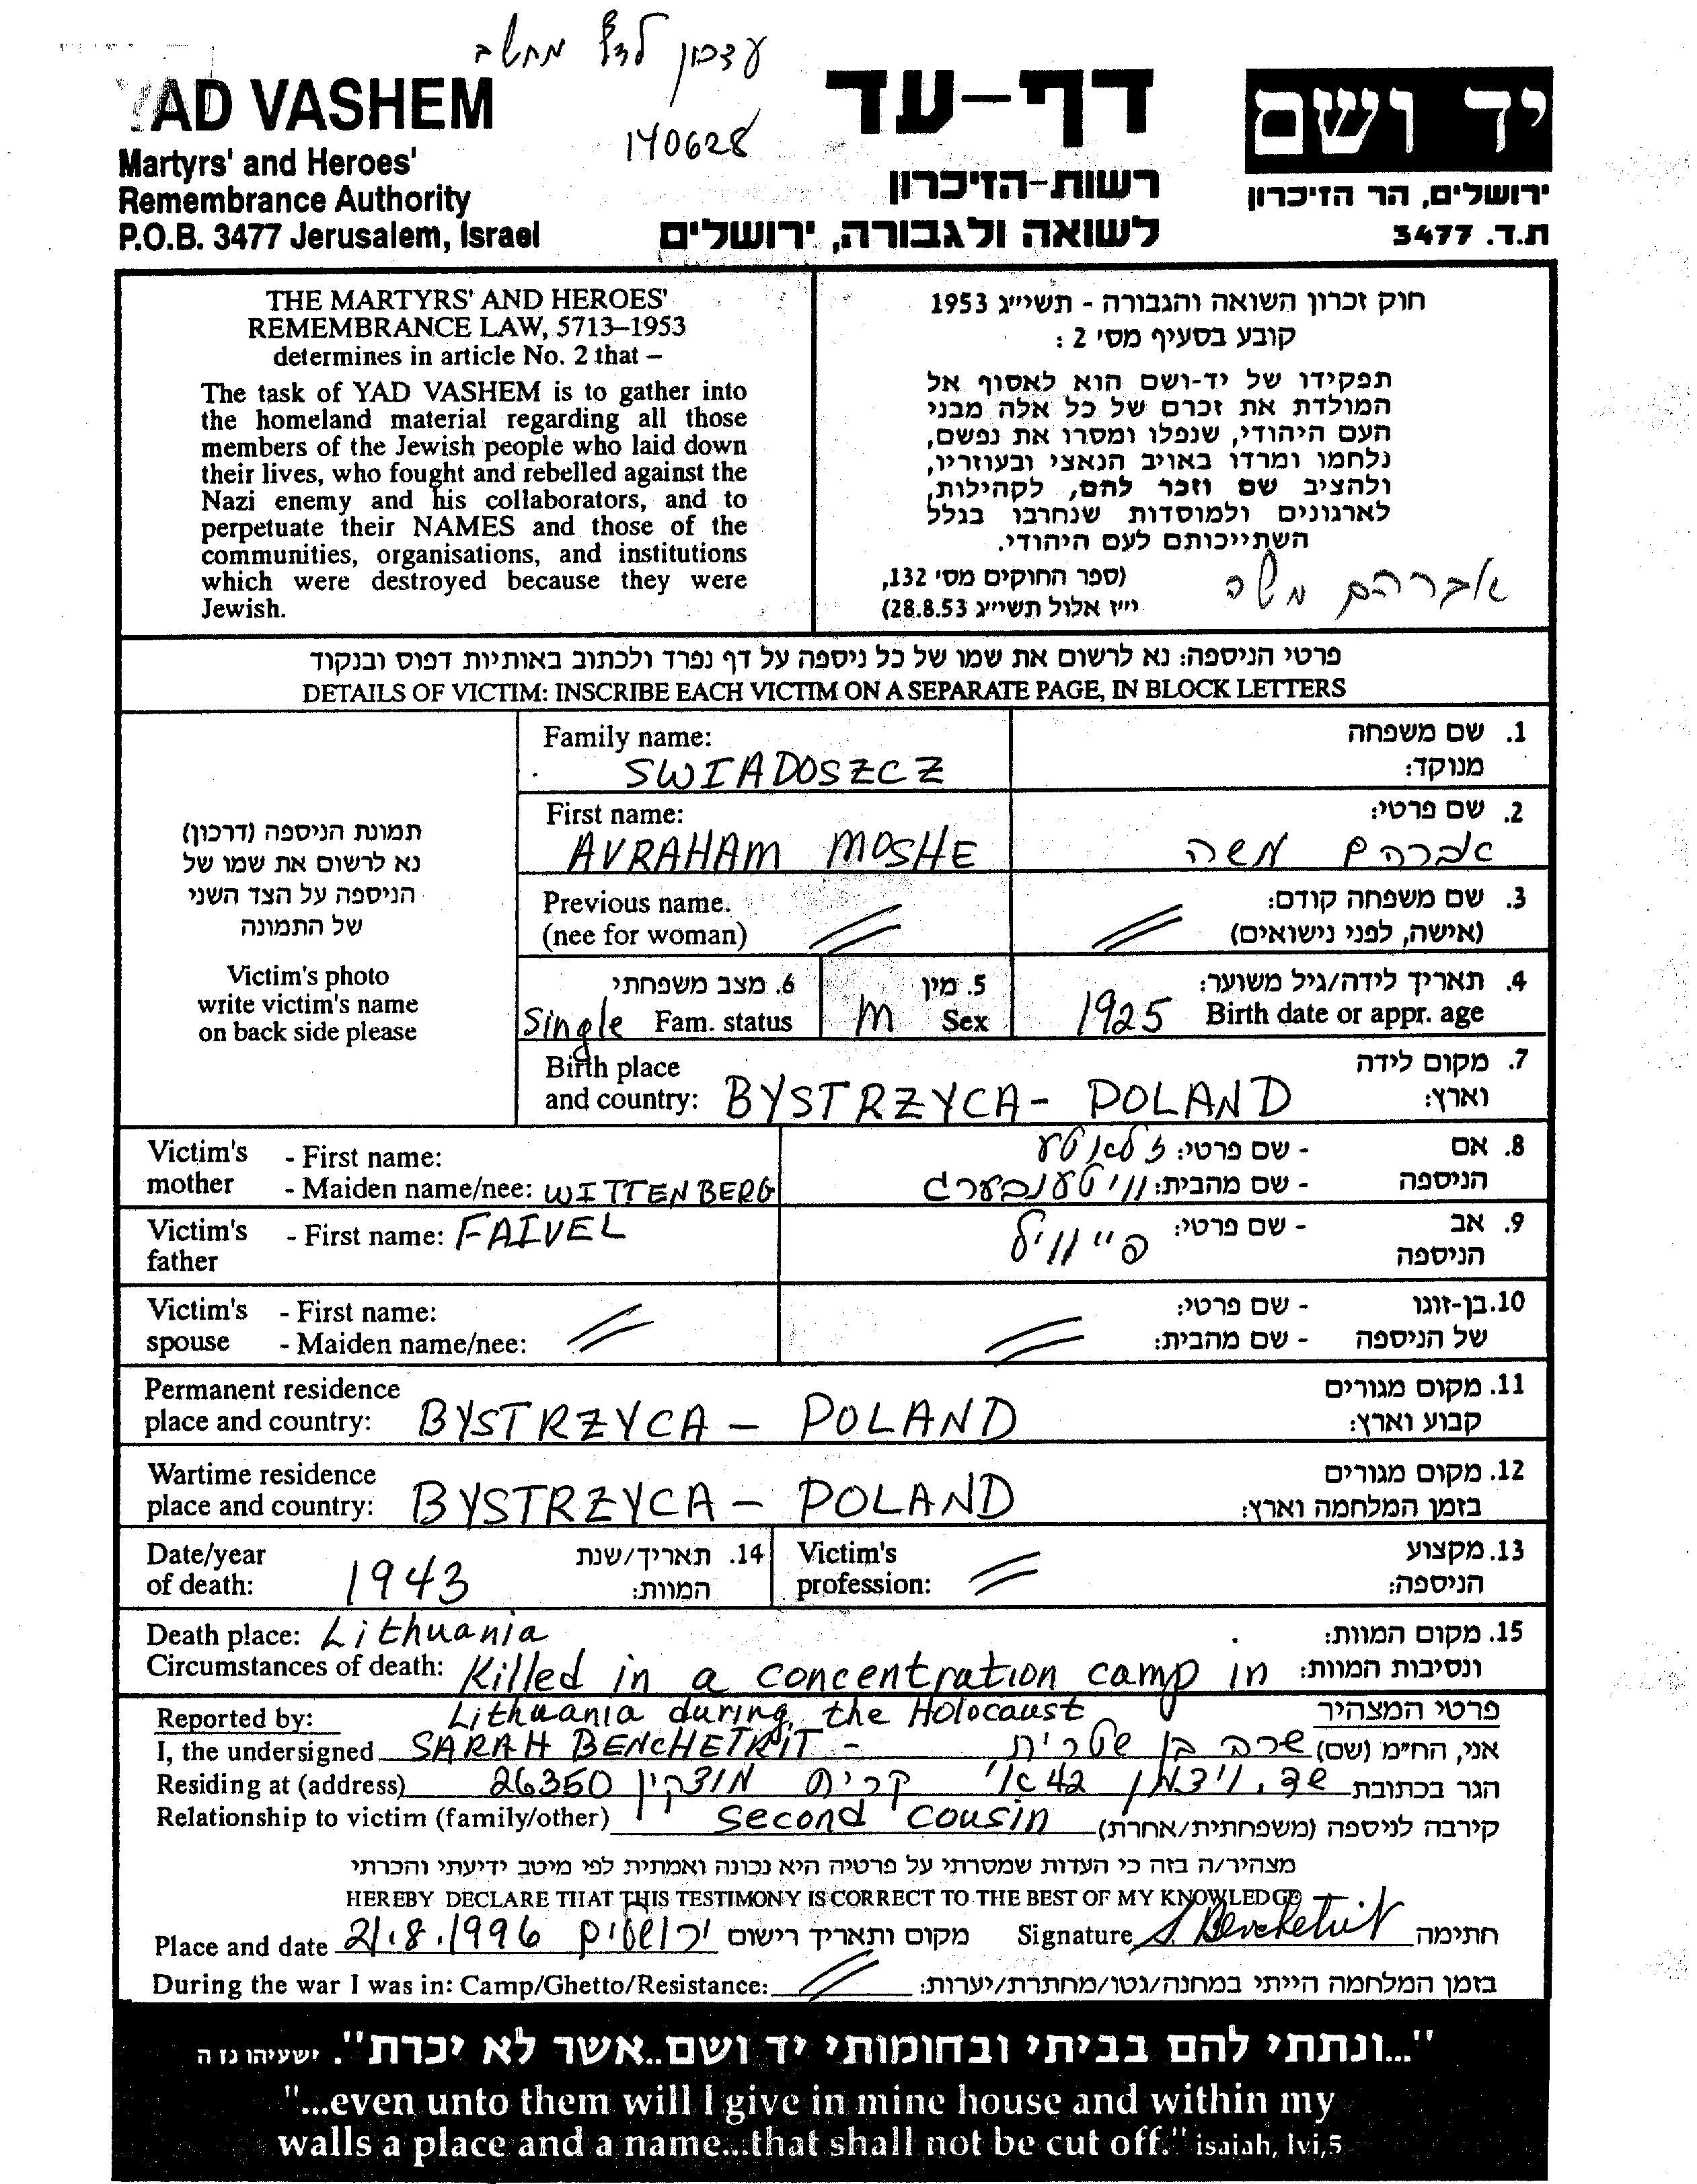 עדכון לדף מחשב
140628
YAD VASHEM
Martyrs' and Heroes'
Remembrance Authority
P.O.B. 3477 Jerusalem, Israel
דף-עד
רשות-הזיכרון
לשואה ולגבורה, ירושלים
יד ושם
ירושלים, הר הזיכרון
ת.ד. 3477
THE MARTYRS' AND HEROES'
REMEMBRANCE LAW, 5713–1953
determines in article No. 2 that –
The task of YAD VASHEM is to gather into
the homeland material regarding all those
members of the Jewish people who laid down
their lives, who fought and rebelled against the
Nazi enemy and his collaborators, and to
perpetuate their NAMES and those of the
communities, organisations, and institutions
which were destroyed because they were
Jewish.
חוק זכרון השואה והגבורה - תשי״ג 1953
קובע בסעיף מס׳ 2 :
תפקידו של יד-ושם הוא לאסוף אל
המולדת את זכרם של כל אלה מבני
העם היהודי, שנפלו ומסרו את נפשם,
נלחמו ומרדו באויב הנאצי ובעוזריו,
ולהציב שם וזכר להם, לקהילות,
לארגונים ולמוסדות שנחרבו בגלל
השתייכותם לעם היהודי.
(ספר החוקים מס׳ 132,
י״ז אלול תשי״ג 28.8.53)
אברהם משה
פרטי הניספה: נא לרשום את שמו של כל ניספה על דף נפרד ולכתוב באותיות דפוס ובנקוד
DETAILS OF VICTIM: INSCRIBE EACH VICTIM ON A SEPARATE PAGE, IN BLOCK LETTERS
תמונת הניספה (דרכון)
נא לרשום את שמו של
הניספה על הצד השני
של התמונה
Victim's photo
write victim's name
on back side please
Family name: 1. שם משפחה
SWIADOSZCZ מנוקד:
First name: 2. שם פרטי:
AVRAHAM MOSHE אברהם משה
Previous name. 3. שם משפחה קודם:
(nee for woman) (אישה, לפני נישואים)
6. מצב משפחתי 5. מין 4. תאריך לידה/גיל משוער:
Single Fam. status M Sex 1925 Birth date or appr. age
Birth place 7. מקום לידה
and country: BYSTRZYCA - POLAND וארץ:
Victim's - First name: זלאטע - שם פרטי: 8. אם
mother - Maiden name/nee: WITTENBERG וויטענבערג - שם מהבית: הניספה
Victim's - First name: FAIVEL פייוויל - שם פרטי: 9. אב
father הניספה
Victim's - First name: - שם פרטי: 10. בן-זוגו
spouse - Maiden name/nee: - שם מהבית: של הניספה
Permanent residence 11. מקום מגורים
place and country: BYSTRZYCA - POLAND קבוע וארץ:
Wartime residence 12. מקום מגורים
place and country: BYSTRZYCA - POLAND בזמן המלחמה וארץ:
Date/year 14. תאריך/שנת Victim's 13. מקצוע
of death: 1943 המוות: profession: הניספה:
Death place: Lithuania 15. מקום המוות:
Circumstances of death: Killed in a concentration camp in ונסיבות המוות:
Lithuania during the Holocaust
Reported by: פרטי המצהיר
I, the undersigned SARAH BENCHETRIT - שרה בן שטרית אני, הח״מ (שם)
Residing at (address) 26350 קרית מוצקין 42 א' שד. ויצמן הגר בכתובת
Relationship to victim (family/other) second cousin קירבה לניספה (משפחתית/אחרת)
מצהיר/ה בזה כי העדות שמסרתי על פרטיה היא נכונה ואמתית לפי מיטב ידיעתי והכרתי
HEREBY DECLARE THAT THIS TESTIMONY IS CORRECT TO THE BEST OF MY KNOWLEDGE
Place and date 21.8.1996 ירושלים מקום ותאריך רישום Signature S. Benchetrit חתימה
During the war I was in: Camp/Ghetto/Resistance: בזמן המלחמה הייתי במחנה/גטו/מחתרת/יערות:
"...ונתתי להם בביתי ובחומותי יד ושם..אשר לא יכרת". ישעיהו נז ה
"...even unto them will I give in mine house and within my
walls a place and a name...that shall not be cut off." isaiah, lvi,5